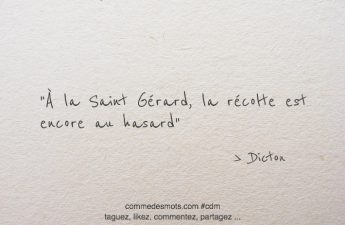 "À la Saint Gérard, la récolte est
encore au hasard"
> Dicton
commedesmots.com #cdm
taguez, likez, commentez, partagez ...